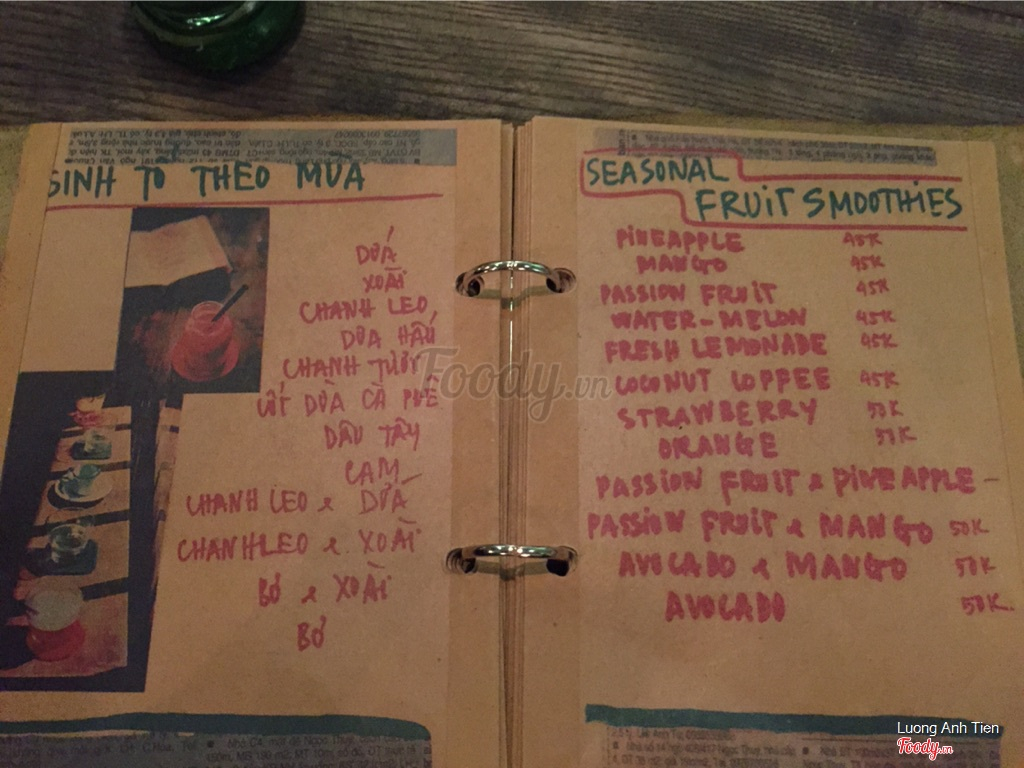 SINH TỐ THEO MÙA
DỨA
XOÀI
CHANH LEO
DƯA HẤU
CHANH TƯƠI
CỐT DỪA CÀ PHÊ
DÂU TÂY
CAM
CHANH LEO & DỨA
CHANH LEO & XOÀI
BƠ & XOÀI
BƠ
SEASONAL
FRUIT SMOOTHIES
PINEAPPLE 45K
MANGO 45K
PASSION FRUIT 45K
WATER-MELON 45K
FRESH LEMONADE 45K
COCONUT COFFEE 45K
STRAWBERRY 50K
ORANGE 50K
PASSION FRUIT & PINEAPPLE -
PASSION FRUIT & MANGO 50K
AVOCADO & MANGO 50K
AVOCADO 50K
Foody.vn
Luong Anh Tien
Foody.vn